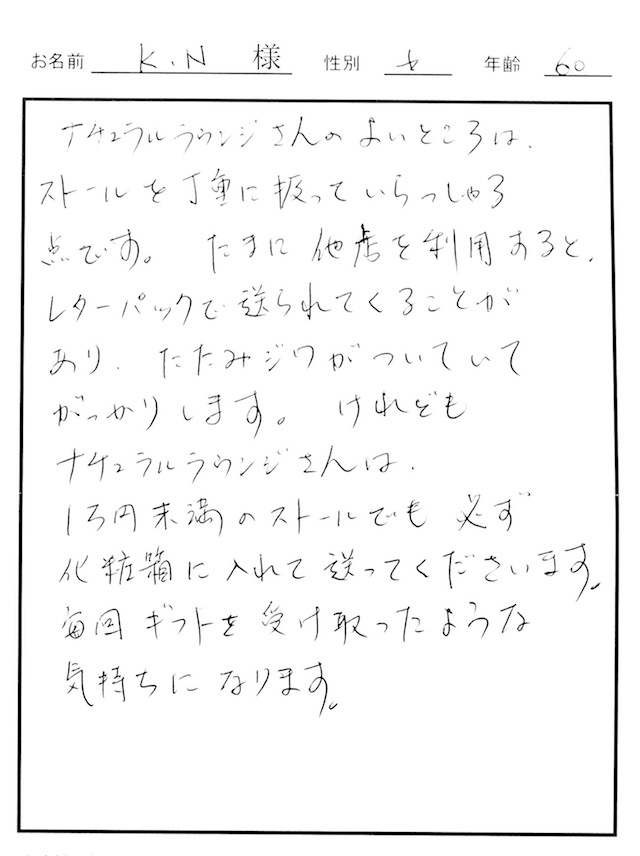 お名前 K.N 様 性別 女 年齢 60
ナチュラルラウンジさんのよいところは、
ストールを丁重に扱っていらっしゃる
点です。 たまに他店を利用すると、
レターパックで送られてくることが
あり、たたみジワがついていて
がっかりします。 けれども
ナチュラルラウンジさんは、
1万円未満のストールでも必ず
化粧箱に入れて送ってくださいます。
毎回ギフトを受け取ったような
気持ちになります。